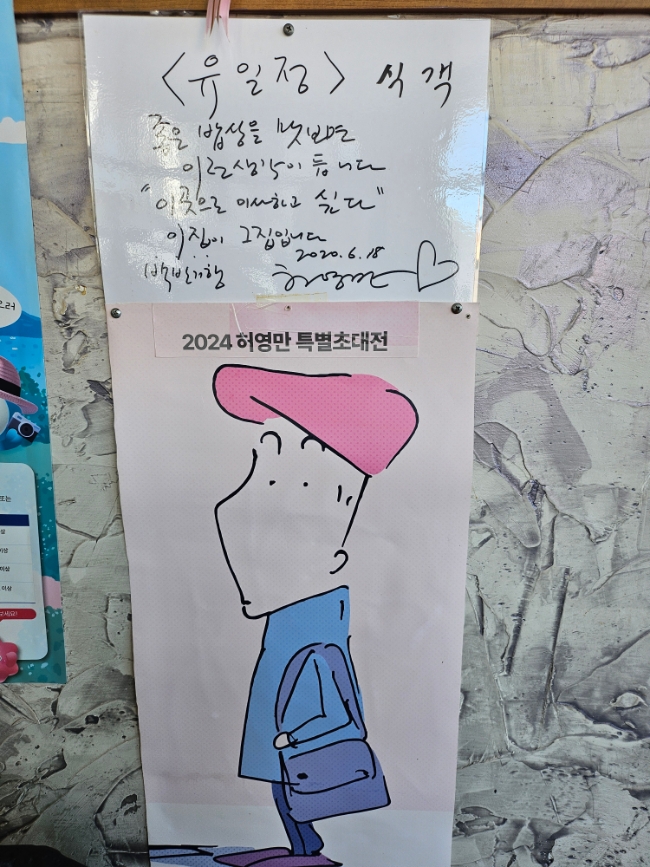 <유일정> 식객
좋은 밥상을 맛보면
이런 생각이 듭니다
"이곳으로 이사하고 싶다"
이집이 그집입니다
2020.6.18
백반기행 허영만
2024 허영만 특별초대전
으러
또는
이상
이상